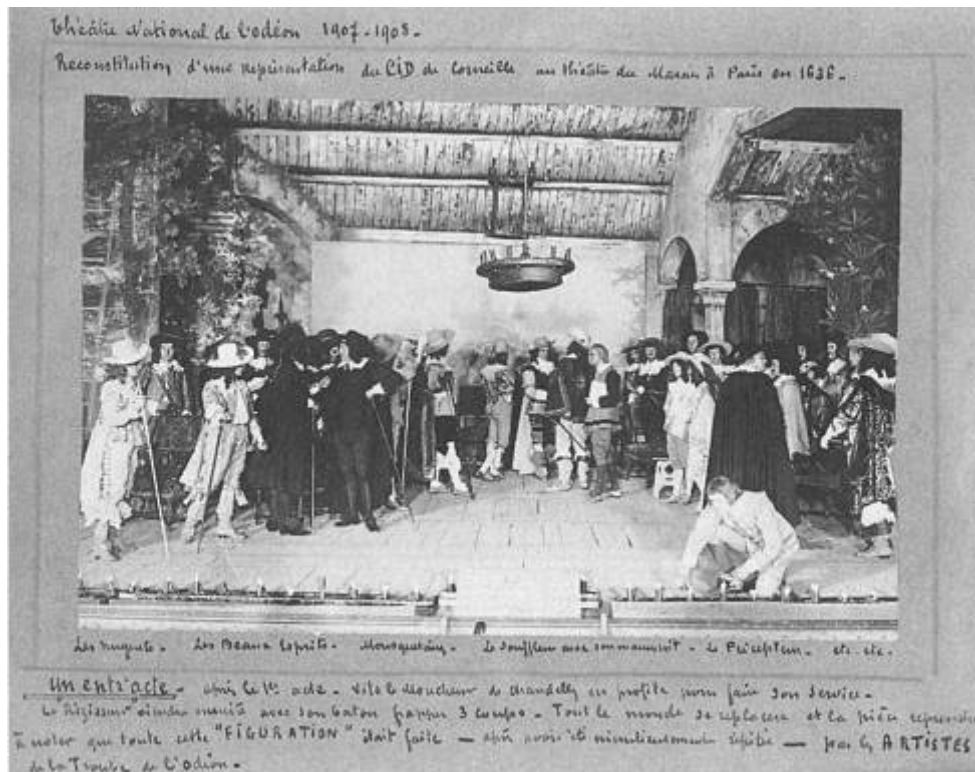 Théâtre National de l'Odéon 1907-1908.
Reconstitution d'une représentation du CID de Corneille au théâtre du Marais à Paris en 1636.
Les Beaux Esprits. Mousquetaires. Le souffleur avec son manuscrit. Le Précepteur. etc. etc.
Un entr'acte. après le 1er acte. Vite le Moucheur de chandelles en profite pour faire son service.
Le "Régisseur" viendra ensuite avec son baton frapper 3 coups. Tout le monde se replacera et la pièce reprendra
à noter que toute cette "FIGURATION" était faite — après avoir été minutieusement répétée — par les ARTISTES
de la Troupe de l'Odéon.